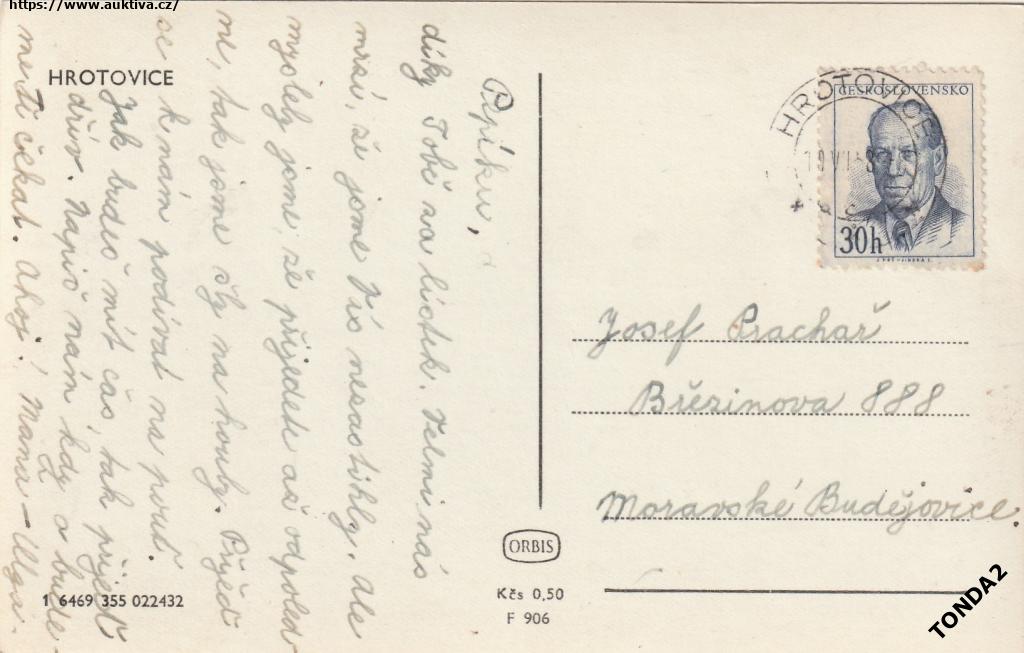 https://www.auktiva.cz/
HROTOVICE
Pepíku,
díky Tobě za lístek. Velmi nás
mrzí, že jsme Vás nezastihly. Ale
myslely jsme, že přijedete až odpoled
ne, tak jsme šly na houby. Přijeď
se k nám podívat na pouť.
Jak budeš mít čas, tak přijeď
dřív. Napiš nám kdy a bude
me Tě čekat. Ahoj! Maňa – Olga.
1 6469 355 022432
ORBIS
Kčs 0,50
F 906
HROTOVICE
ČESKOSLOVENSKO
30h
Josef Prachař
Březinova 888
Moravské Budějovice.
TONDA2